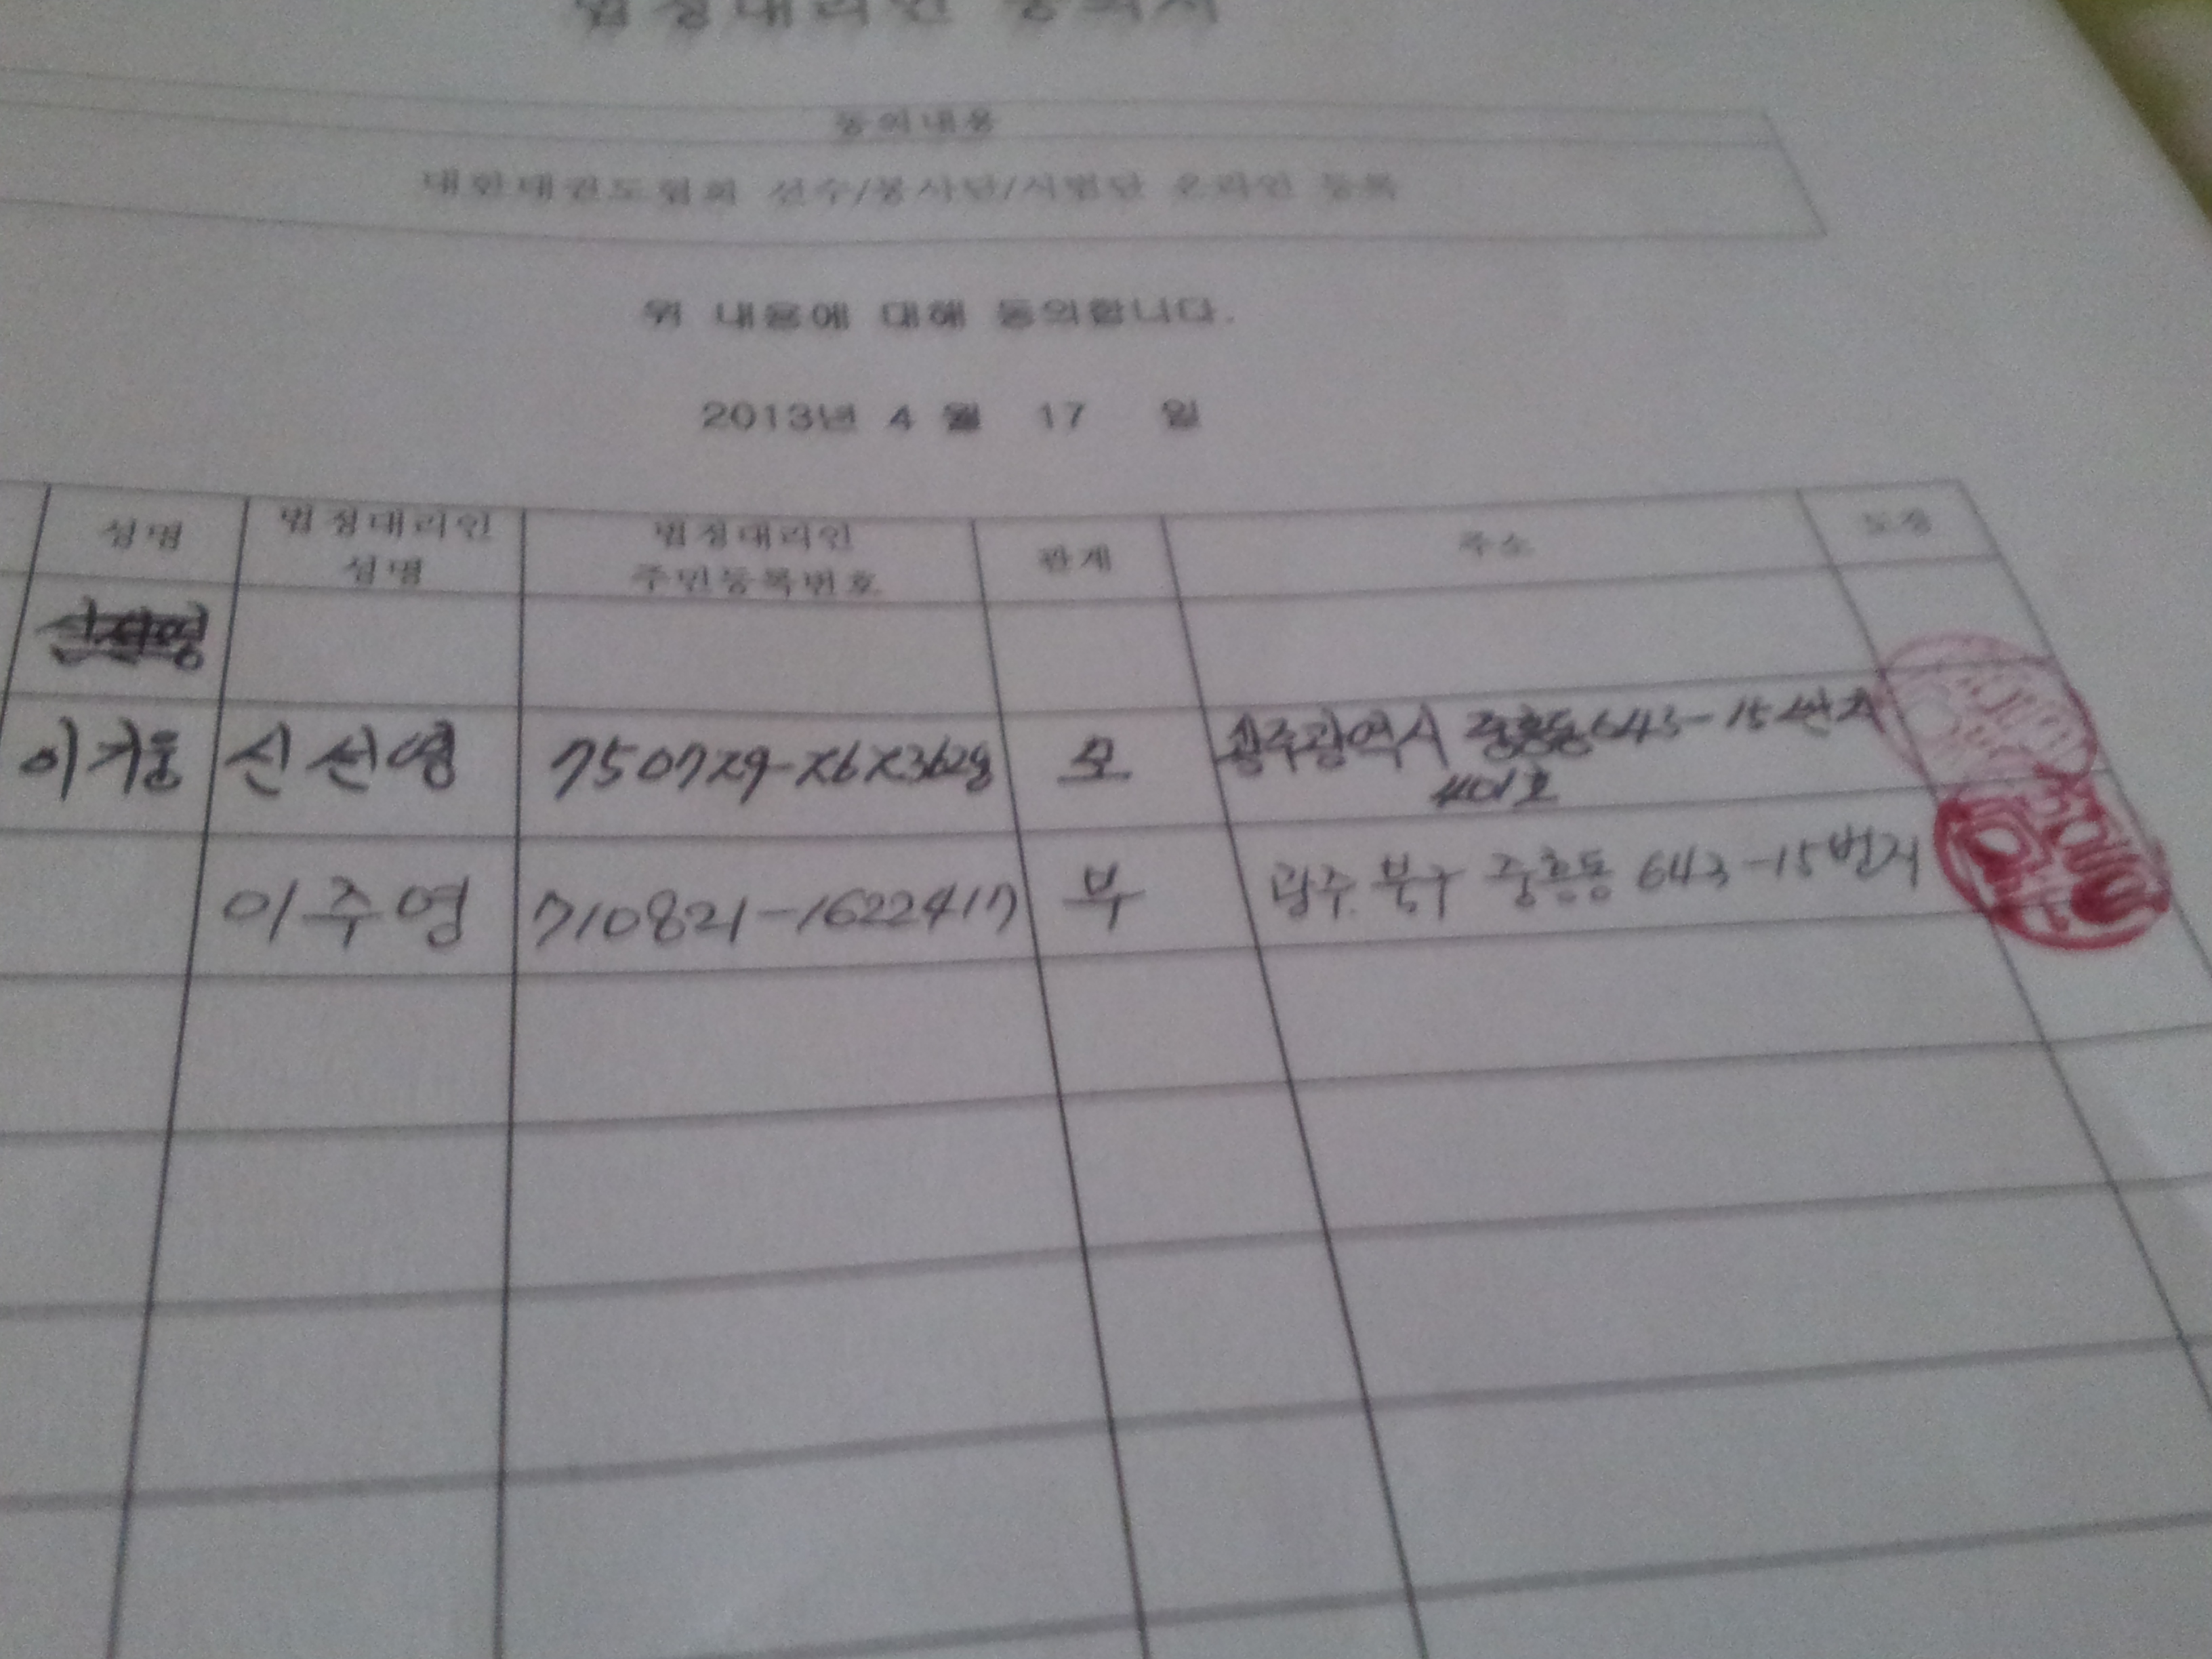 법정대리인 동의서
동의내용
대한태권도협회 선수/봉사단/시범단 온라인 등록
위 내용에 대해 동의합니다.
2013년 4 월 17 일
성명 법정대리인 성명 법정대리인 주민등록번호 관계 주소 도장
신선영 모 광주광역시 중흥동 643-15
401호
이주영 710821-1622417 부 광주 북구 중흥동 643-15번지